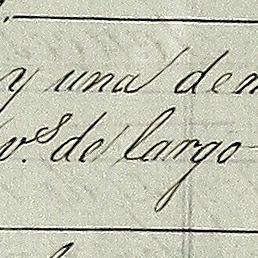 y una den
v.ˢ de largo